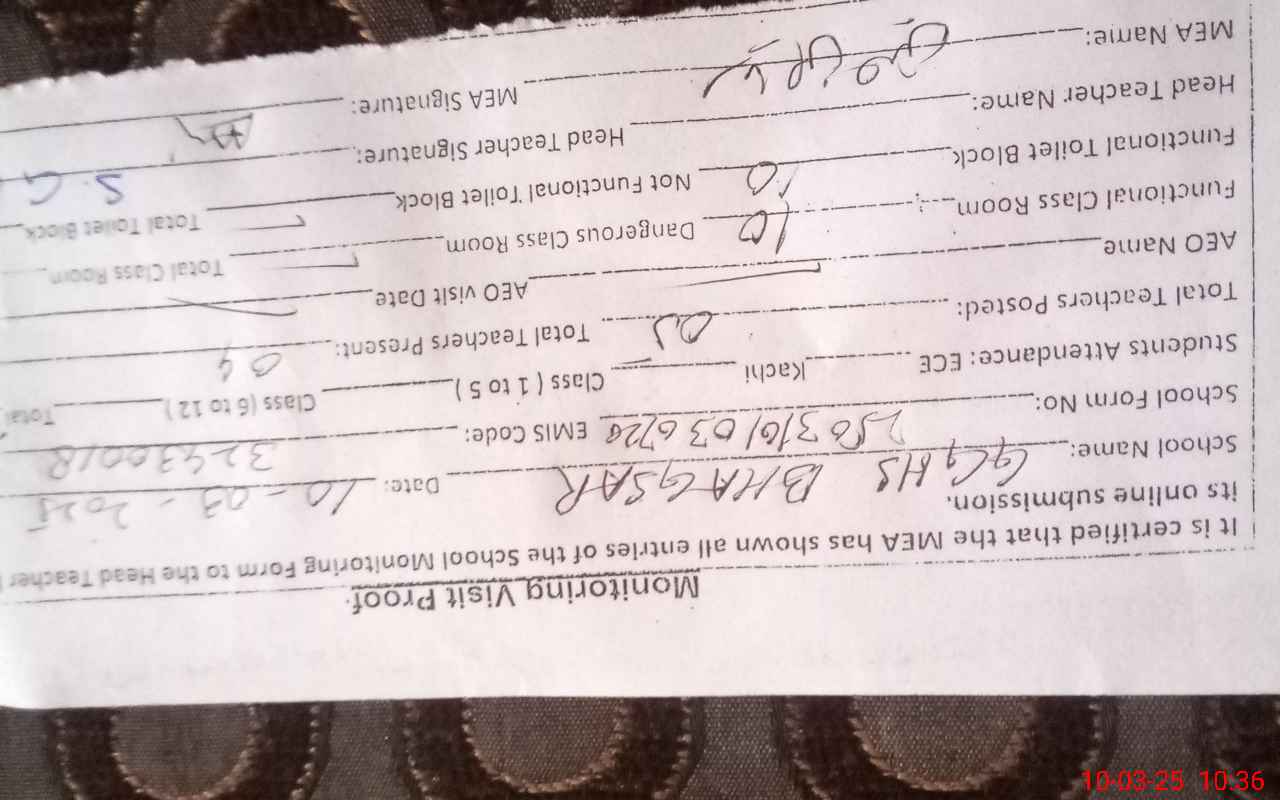 Monitoring Visit Proof.
It is certified that the MEA has shown all entries of the School Monitoring Form to the Head Teacher
its online submission.
School Name: GGHS BHAGSAR Date: 10-03-2025
School Form No: 250310103672 EMIS Code: 32430018
Students Attendance: ECE Kachi Class ( 1 to 5 ) Class (6 to 12 ) Total
Total Teachers Posted: 05 Total Teachers Present: 04
AEO Name AEO visit Date
Functional Class Room 10 Dangerous Class Room Total Class Room
Functional Toilet Block Not Functional Toilet Block Total Toilet Block
Head Teacher Name: Head Teacher Signature: S.G
MEA Name: MEA Signature:
10-03-25 10:36